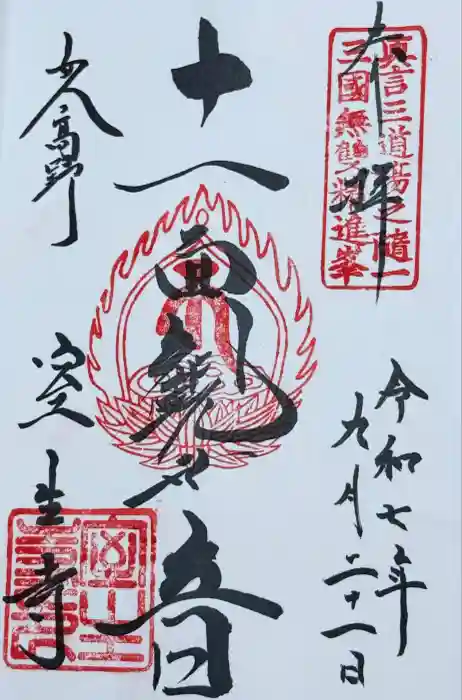 奉拝
眞言三道場之随一
三國無雙精進峯
令和七年
九月二十一日
十一面観世音
女人高野
室生寺